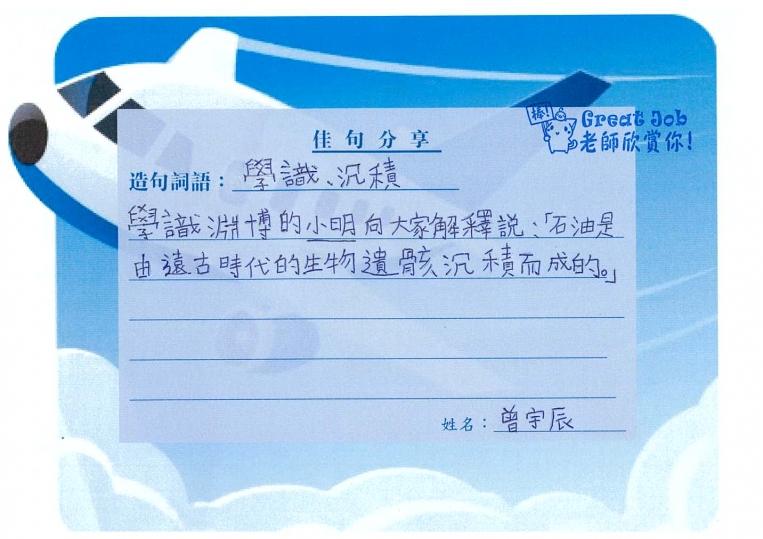 佳句分享
棒!
Great Job
老師欣賞你!
造句詞語：學識、沉積
學識淵博的小明向大家解釋說：「石油是
由遠古時代的生物遺骸沉積而成的。」
姓名：曾宇辰